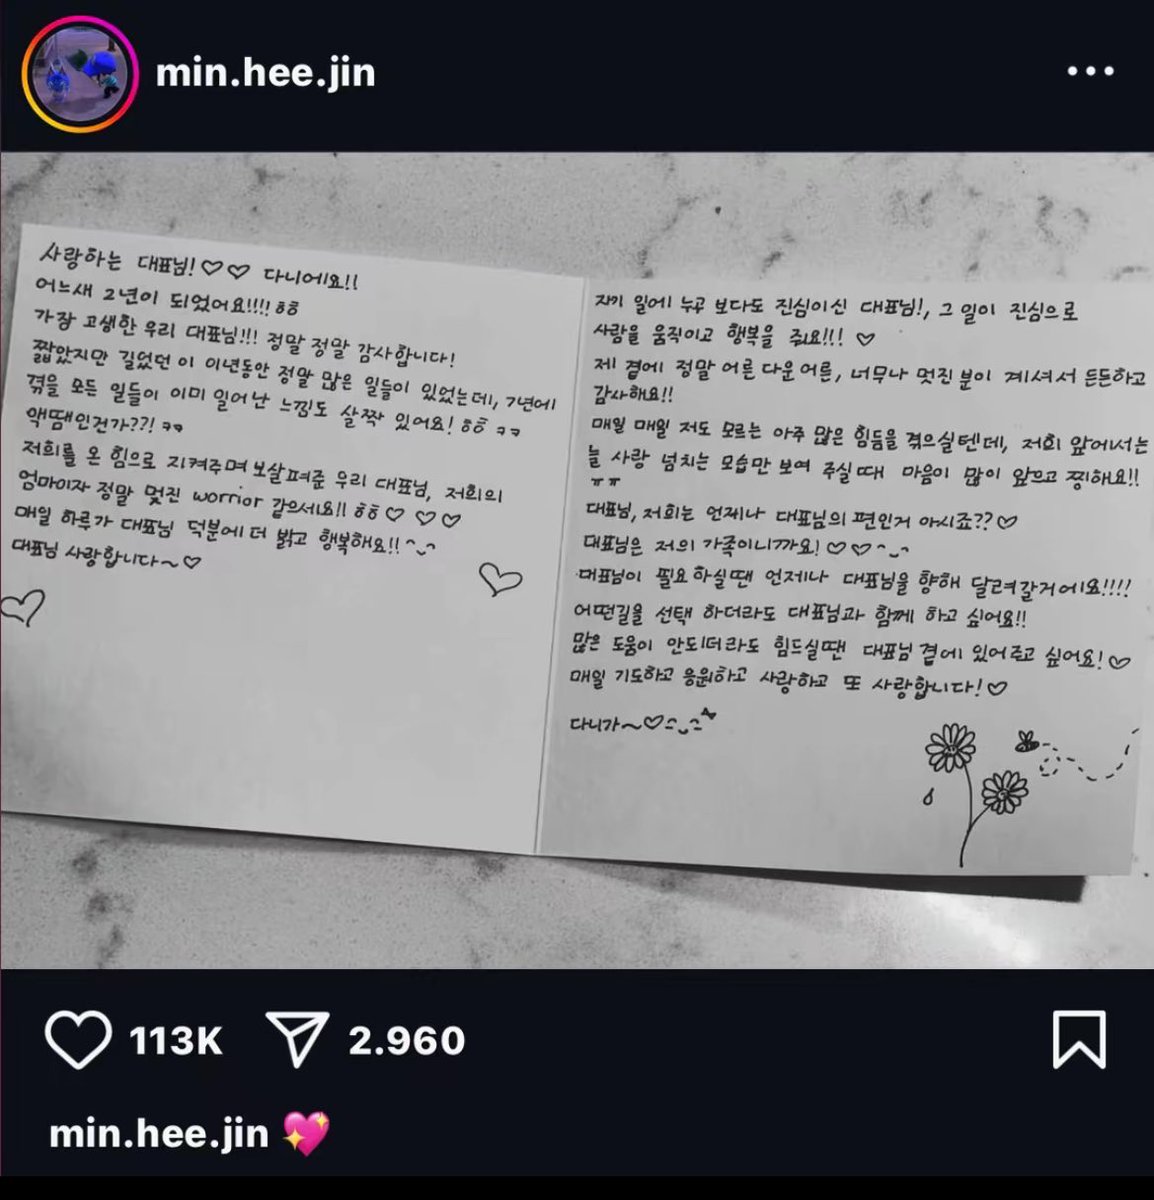 min.hee.jin
사랑하는 대표님!♡♡ 다니에요!!
어느새 2년이 되었어요!!!! ㅎㅎ
가장 고생한 우리 대표님!!! 정말 정말 감사합니다!
짧았지만 길었던 이 이년동안 정말 많은 일들이 있었는데, 7년에
겪을 모든 일들이 이미 일어난 느낌도 살짝 있어요! ㅎㅎ ㅋㅋ
액땜인건가??! ㅋㅋ
저희를 온 힘으로 지켜주며 보살펴준 우리 대표님, 저희의
엄마이자 정말 멋진 worrior 같으세요!! ㅎㅎ♡ ♡♡
매일 하루가 대표님 덕분에 더 밝고 행복해요!! ^‿^
대표님 사랑합니다~♡
자기 일에 누구 보다도 진심이신 대표님!, 그 일이 진심으로
사람을 움직이고 행복을 줘요!!! ♡
제 곁에 정말 어른 다운 어른, 너무나 멋진 분이 계셔서 든든하고
감사해요!!
매일 매일 저도 모르는 아주 많은 힘듦을 겪으실텐데, 저희 앞에서는
늘 사랑 넘치는 모습만 보여 주실때 마음이 많이 앞으고 찡해요!!
ㅠㅠ
대표님, 저희는 언제나 대표님의 편인거 아시죠??♡
대표님은 저의 가족이니까요! ♡♡^‿^
대표님이 필요하실땐 언제나 대표님을 향해 달려갈거에요!!!!
어떤길을 선택 하더라도 대표님과 함께 하고 싶어요!!
많은 도움이 안되더라도 힘드실땐 대표님 곁에 있어주고 싶어요!♡
매일 기도하고 응원하고 사랑하고 또 사랑합니다!♡
다니가~♡
113K 2.960
min.hee.jin 💖